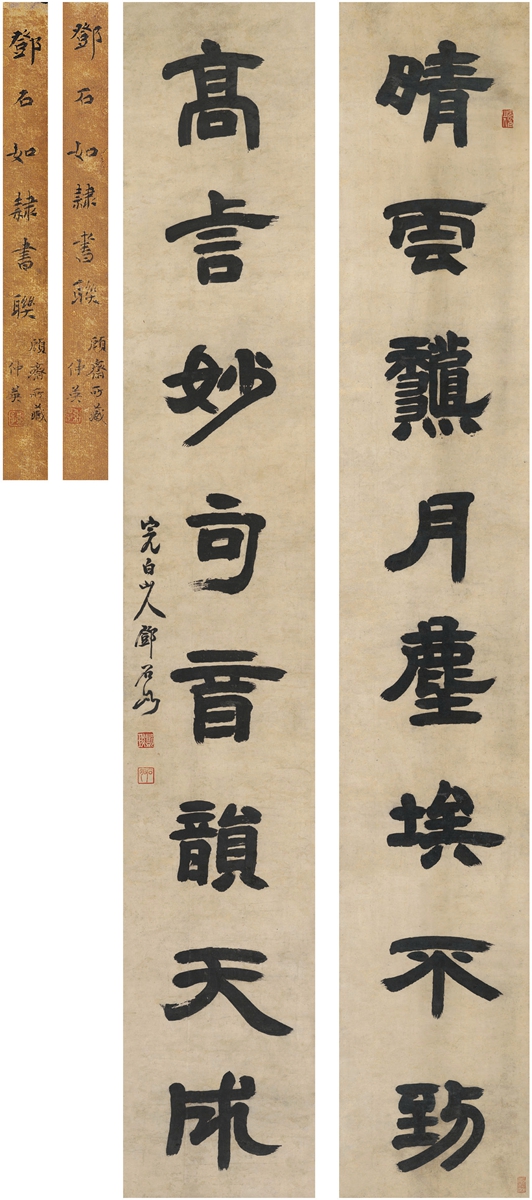 晴雲龝月塵埃不到
高言妙句音韻天成
完白山人鄧石如
鄧石如隸書聯
頋齋所藏
仲英
鄧石如隸書聯
頋齋所藏
仲英